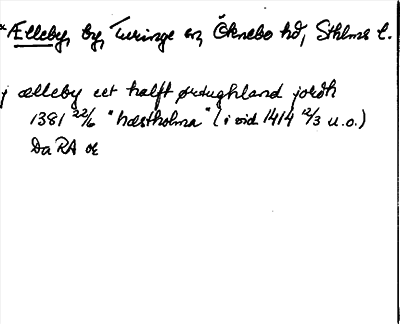 *Ælleby, by, Turinge sn, Öknebo hd, Sthlms l.
j ælleby eet halft ørtughland jordh
1381 22/6 "hæstholma" (i vid. 1414 12/3 u.o.)
Da RA or